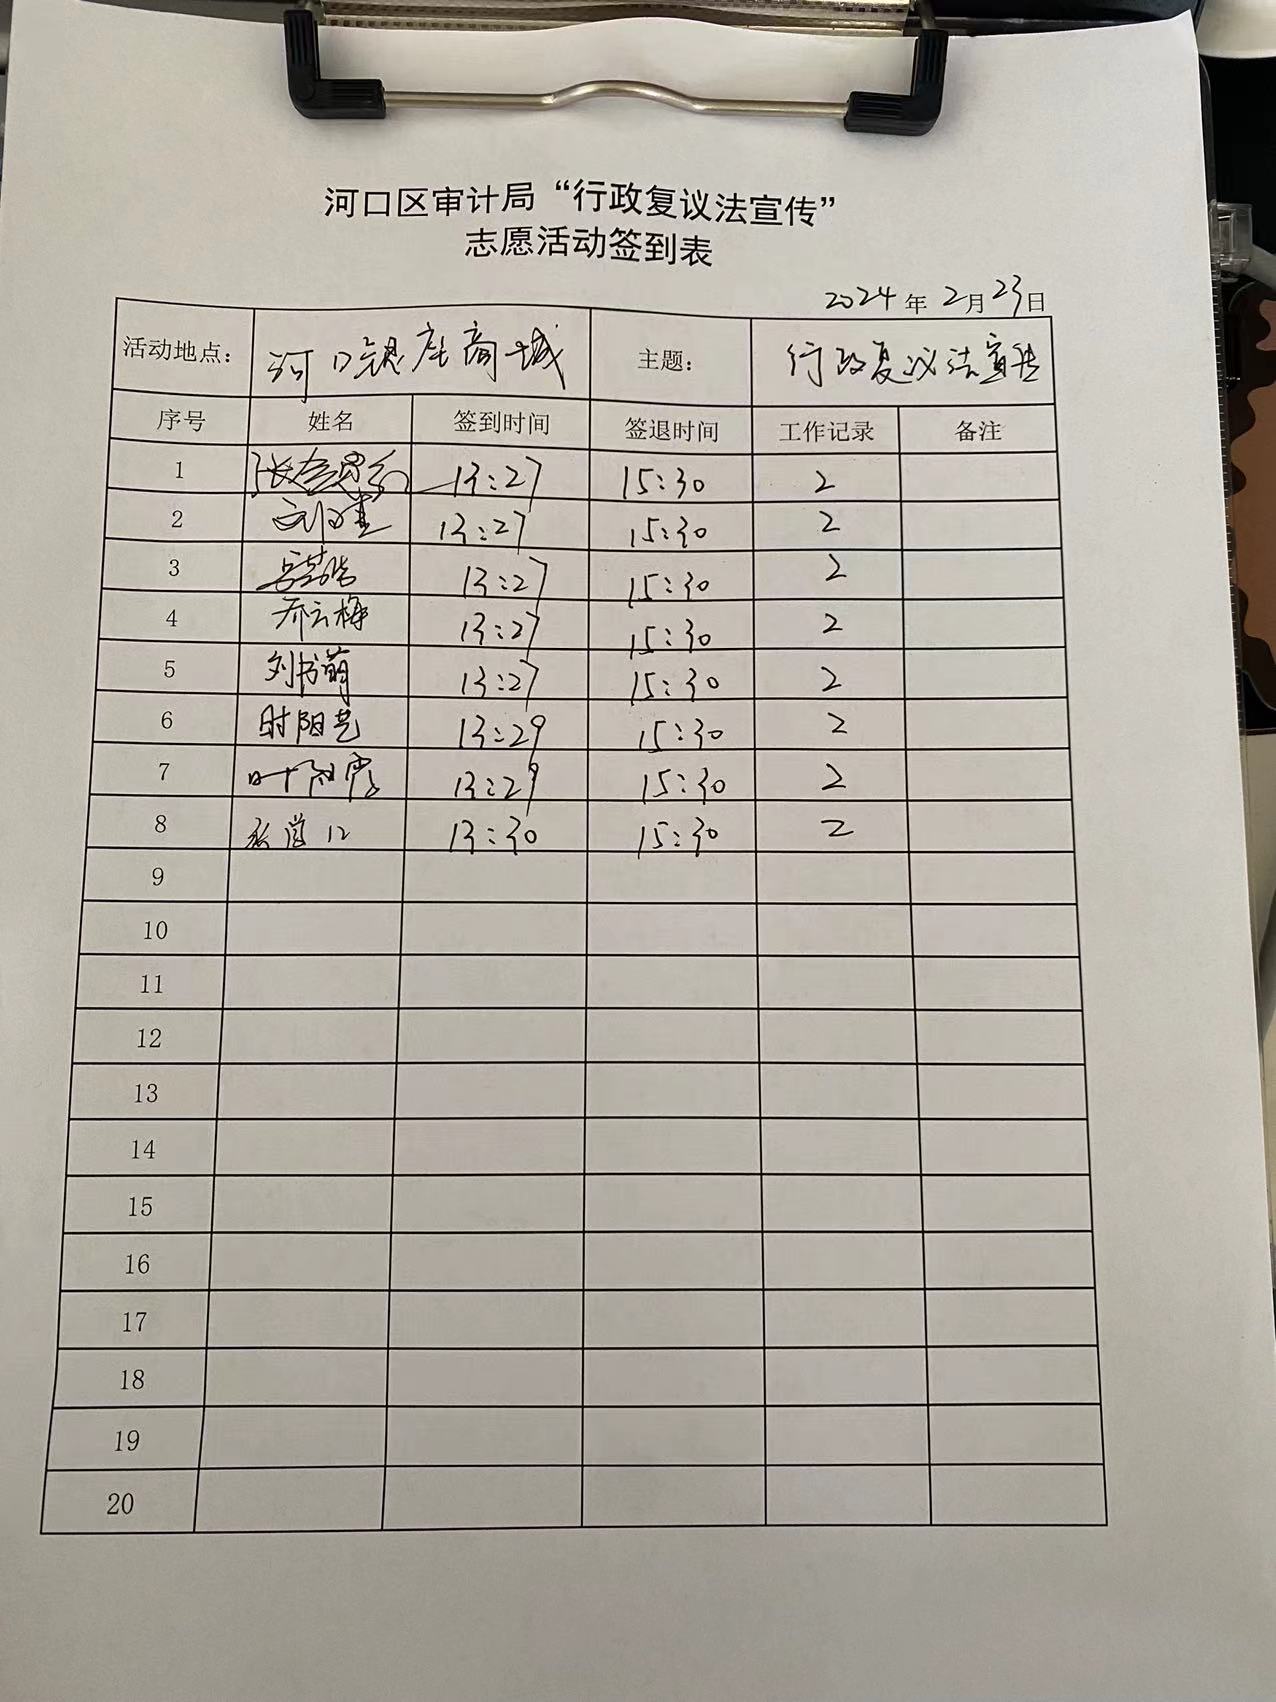 河口区审计局“行政复议法宣传”
志愿活动签到表
2024年2月23日
活动地点: 河口银座商城 主题: 行政复议法宣传
序号 姓名 签到时间 签退时间 工作记录 备注
1 13:27 15:30 2
2 13:27 15:30 2
3 13:27 15:30 2
4 乔云梅 13:27 15:30 2
5 刘书萌 13:27 15:30 2
6 时阳艺 13:29 15:30 2
7 13:29 15:30 2
8 13:30 15:30 2
9
10
11
12
13
14
15
16
17
18
19
20